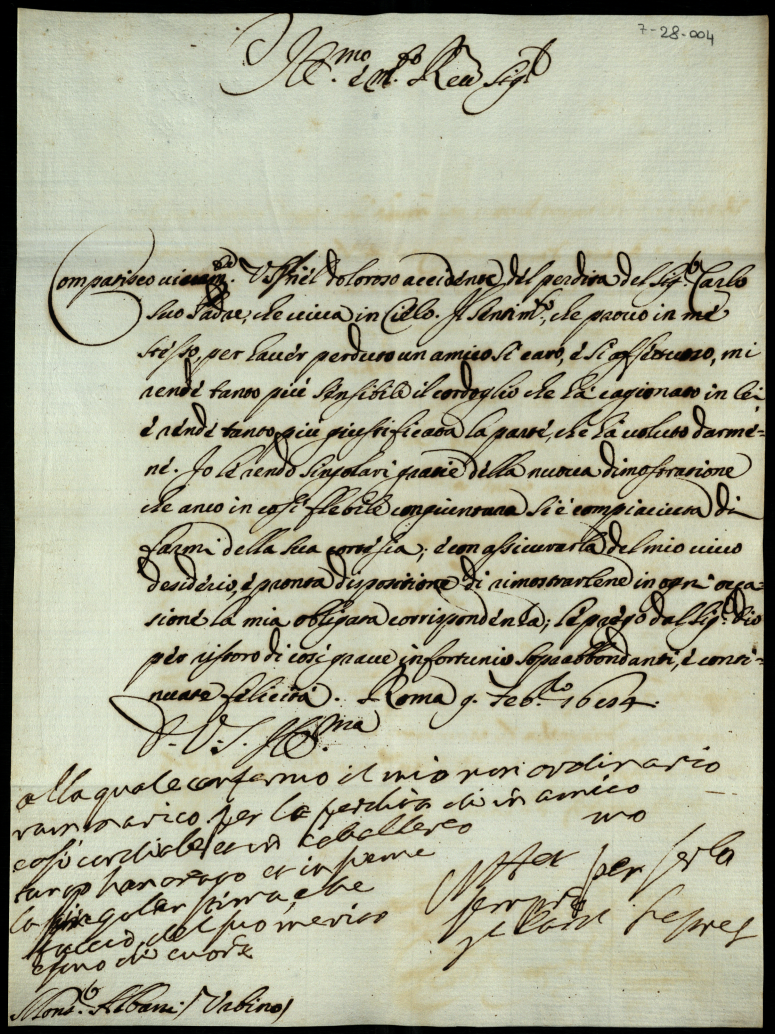 7-28-004
Ill.mo e M.to Rev Sig.r
Compatisco vivam.te V.S. nel doloroso accidente del perdita del Sig.r Carlo
suo Padre, che viva in Cielo. Il sentim.to, che provo in me
stesso, per haver perduto un amico si caro, e si affettuoso, mi
rende tanto più sensibile il cordoglio che hà cagionato in lei
e rende tanto più giustificata la parte, che hà voluto darme=
ne. Io le rendo singolari gratie della nuova dimostratione
che anco in così flebile congiuntura si è compiaciuta di
farmi della sua cortesia; e con assicurarla del mio vivo
desiderio, e pronta dispositione di rimostrarlene in ogni occa=
sione la mia obligata corrispondenza; le prego dal Sig.r Dio
per ristoro di così grave infortunio soprabbondanti, e conti=
nuate felicità. Roma 9. Feb.ro 1684.
D. V. S. Ill.ma
alla quale confermo il mio non ordinario
rammarico per la perdita di un amico
così cordiale et un cavallero
tanto honorato et insieme
la singular stima, che
faccio del suo merito
e sono di cuore
per serla
Mons.r Albani (Urbino)